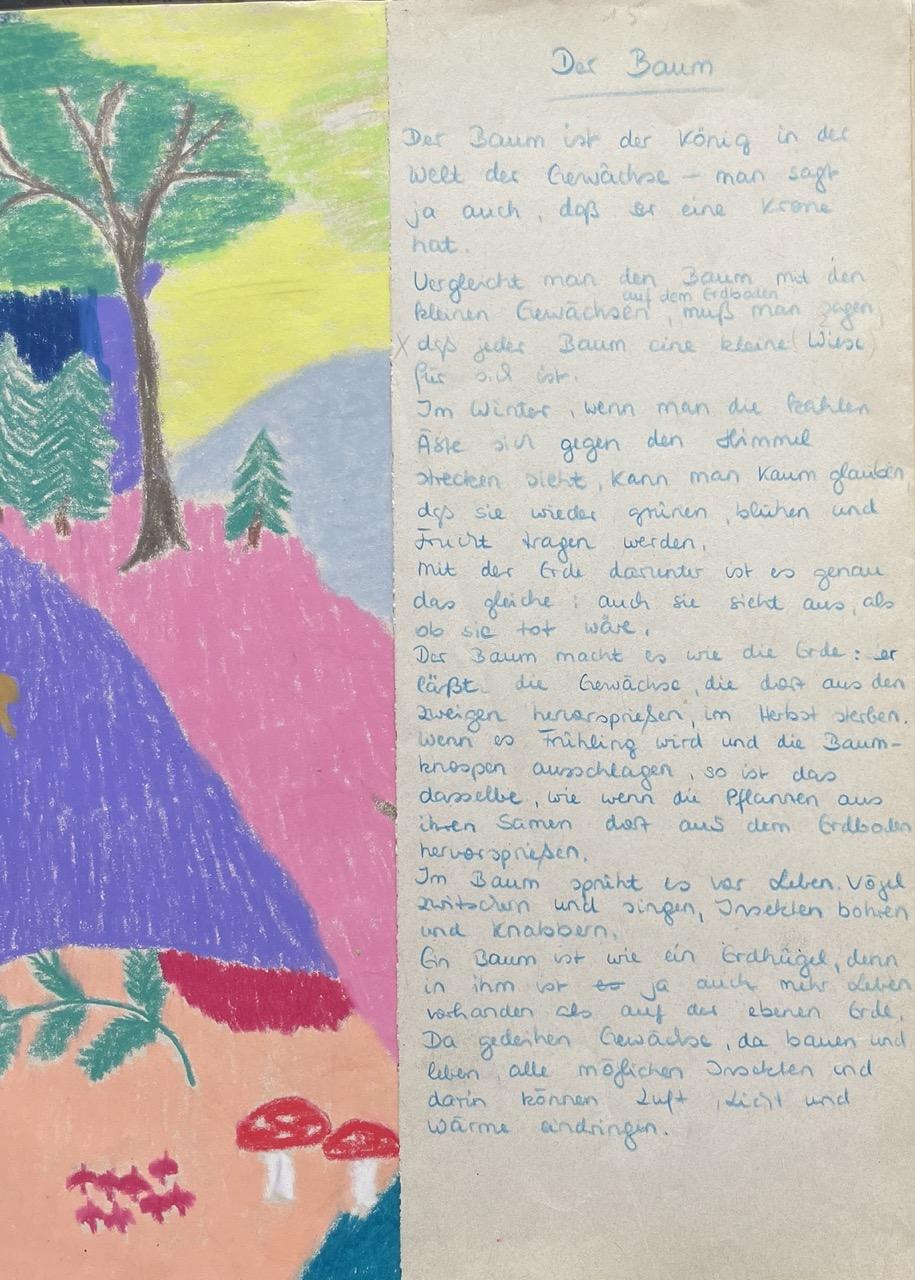 Der Baum
Der Baum ist der König in der
Welt der Gewächse – man sagt
ja auch, daß er eine Krone
hat.
Vergleicht man den Baum mit den
auf dem Erdboden
kleinen Gewächsen, muß man sagen,
daß jeder Baum eine kleine (Wiese)
für sich ist.
Im Winter, wenn man die kahlen
Äste sich gegen den Himmel
strecken sieht, kann man kaum glauben,
daß sie wieder grünen, blühen und
Frucht tragen werden.
Mit der Erde darunter ist es genau
das gleiche: auch sie sieht aus, als
ob sie tot wäre.
Der Baum macht es wie die Erde: er
läßt die Gewächse, die dort aus den
Zweigen hervorsprießen, im Herbst sterben.
Wenn es Frühling wird und die Baum-
knospen ausschlagen, so ist das
dasselbe, wie wenn die Pflannen aus
ihren Samen dort aus dem Erdboden
hervorsprießen.
Im Baum sprüht es vor Leben. Vögel
zwitschern und singen, Insekten bohren
und knabbern.
Ein Baum ist wie ein Erdhügel, denn
in ihm ist ja auch mehr Leben
vorhanden als auf der ebenen Erde.
Da gedeihen Gewächse, da bauen und
leben alle möglichen Insekten und
darin können Luft, Licht und
Wärme eindringen.